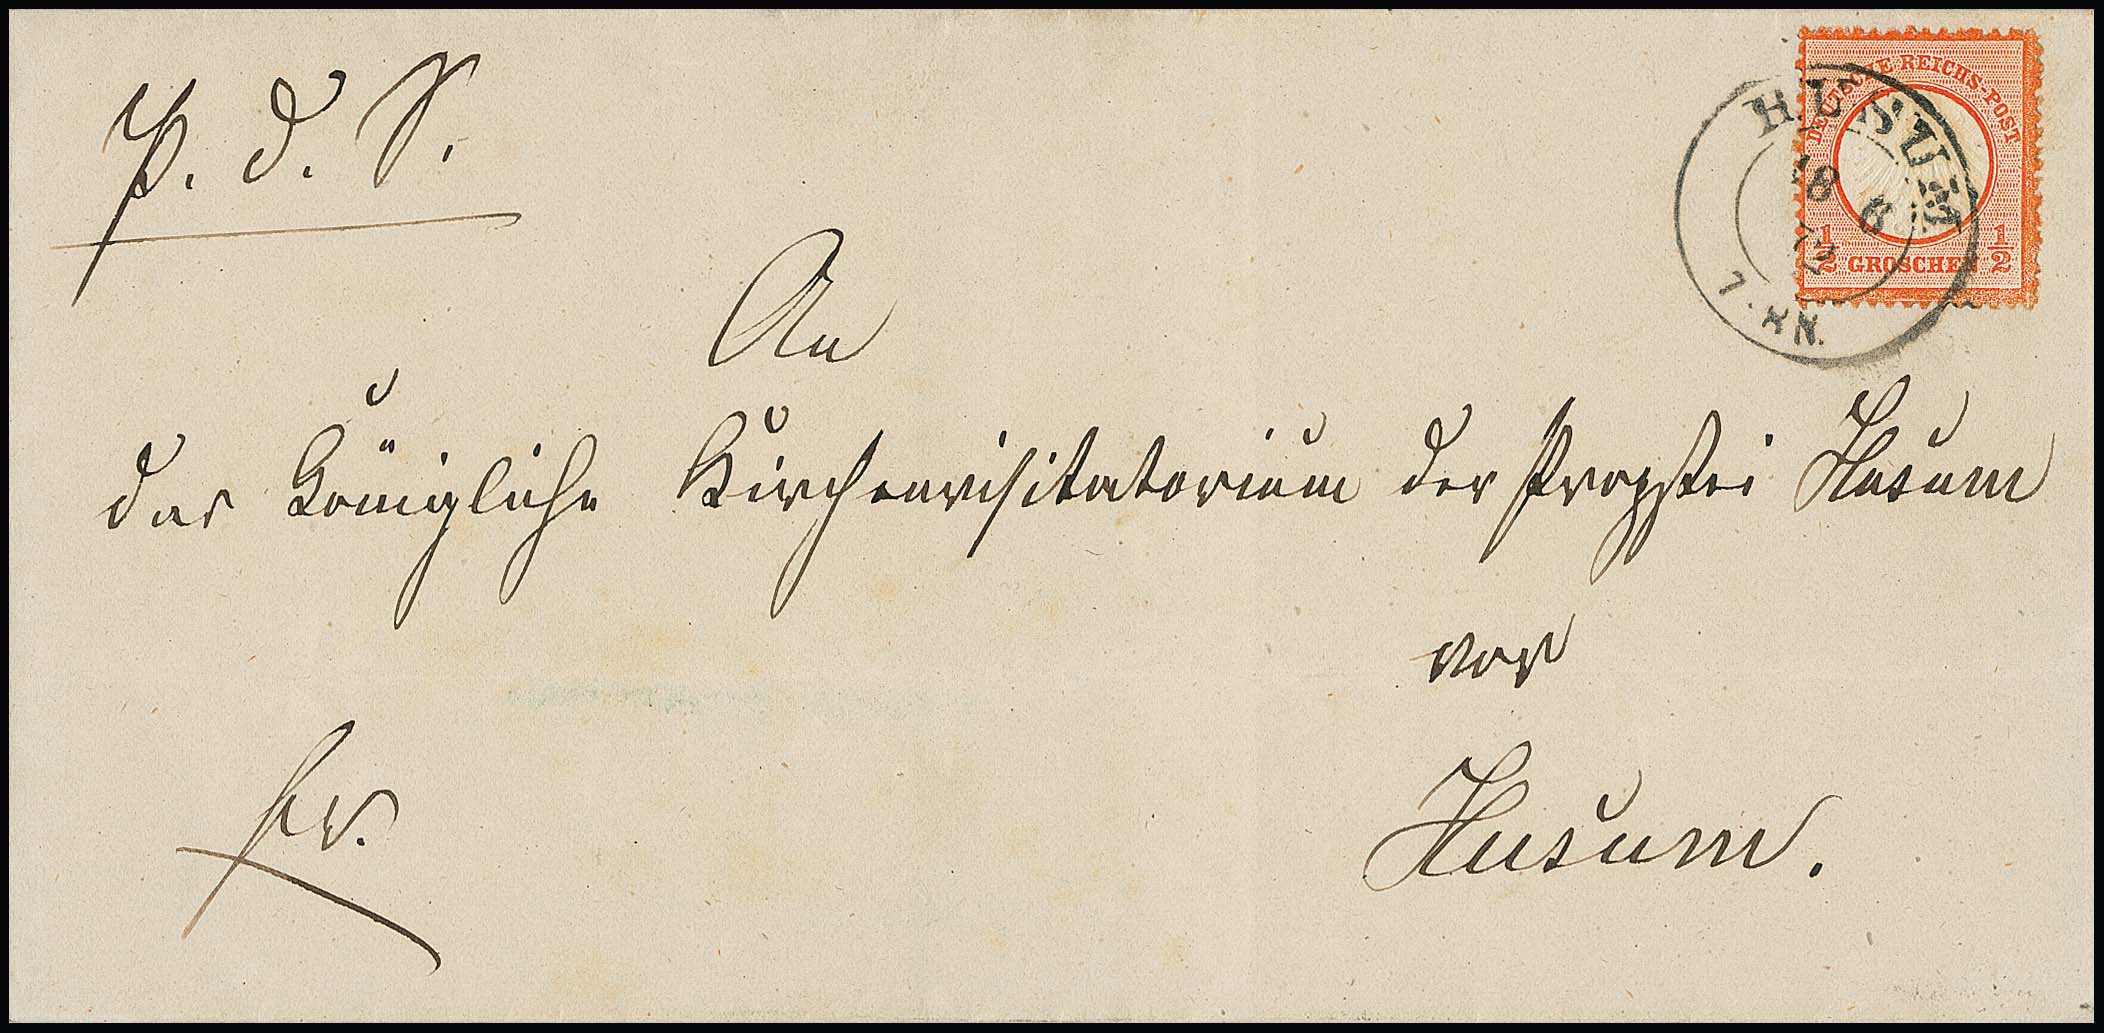 P. d. S.
DEUTSCHE REICHS-POST
HUSUM
18 6
72
7-8 N.
1/2 GROSCHEN 1/2
An
das Königliche Kirchenvisitatorium der Propstei Husum
vor
Husum.
fr.